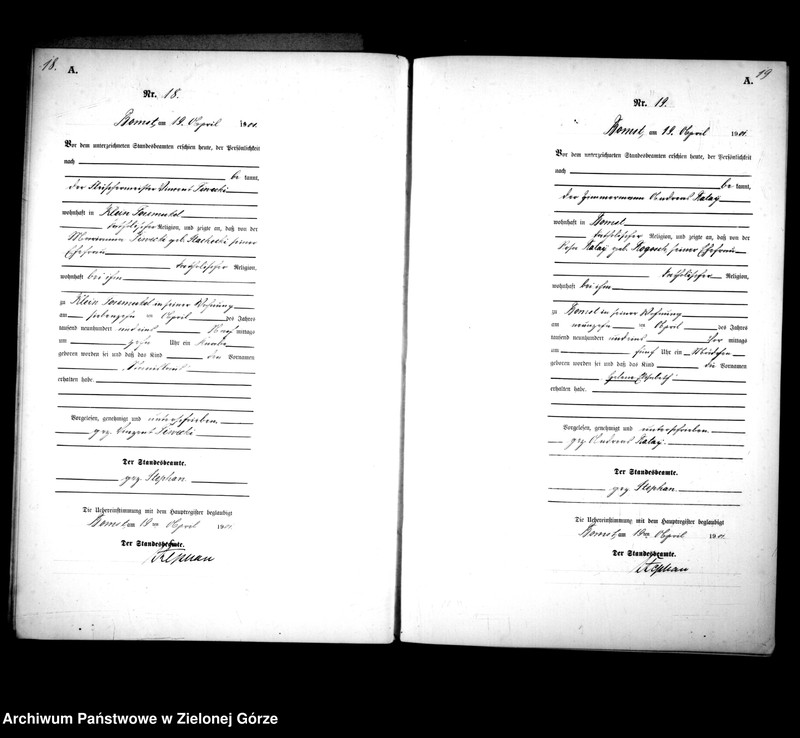 18.
A.
Nr. 18.
Bomst, am 19. April 1901.
Vor dem unterzeichneten Standesbeamten erschien heute, der Persönlichkeit
nach
be kannt,
der
wohnhaft in Klein Posemukel
katholischer Religion, und zeigte an, daß von der
geb. seiner
Ehefrau
katholischer Religion,
wohnhaft bei ihm
zu Klein Posemukel in seiner Wohnung
am siebenzehn ten April des Jahres
tausend neunhundert und eins Nach mittags
um zehn Uhr ein Knabe
geboren worden sei und daß das Kind den Vornamen
erhalten habe.
Vorgelesen, genehmigt und unterschrieben.
gez.
Der Standesbeamte.
gez. Stephan.
Die Uebereinstimmung mit dem Hauptregister beglaubigt
Bomst, am 19ten April 1901.
Der Standesbeamte.
Stephan
19
A.
Nr. 19.
Bomst, am 19. April 1901.
Vor dem unterzeichneten Standesbeamten erschien heute, der Persönlichkeit
nach
be kannt,
der Zimmermann Andreas
wohnhaft in Bomst
katholischer Religion, und zeigte an, daß von der
geb. seiner Ehefrau
katholischer Religion,
wohnhaft bei ihm
zu Bomst in seiner Wohnung
am ten April des Jahres
tausend neunhundert und eins Vor mittags
um fünf Uhr ein Mädchen
geboren worden sei und daß das Kind die Vornamen
Helene Elisabeth
erhalten habe.
Vorgelesen, genehmigt und unterschrieben.
gez. Andreas
Der Standesbeamte.
gez. Stephan.
Die Uebereinstimmung mit dem Hauptregister beglaubigt
Bomst, am 19ten April 1901.
Der Standesbeamte.
Stephan
Archiwum Państwowe w Zielonej Górze